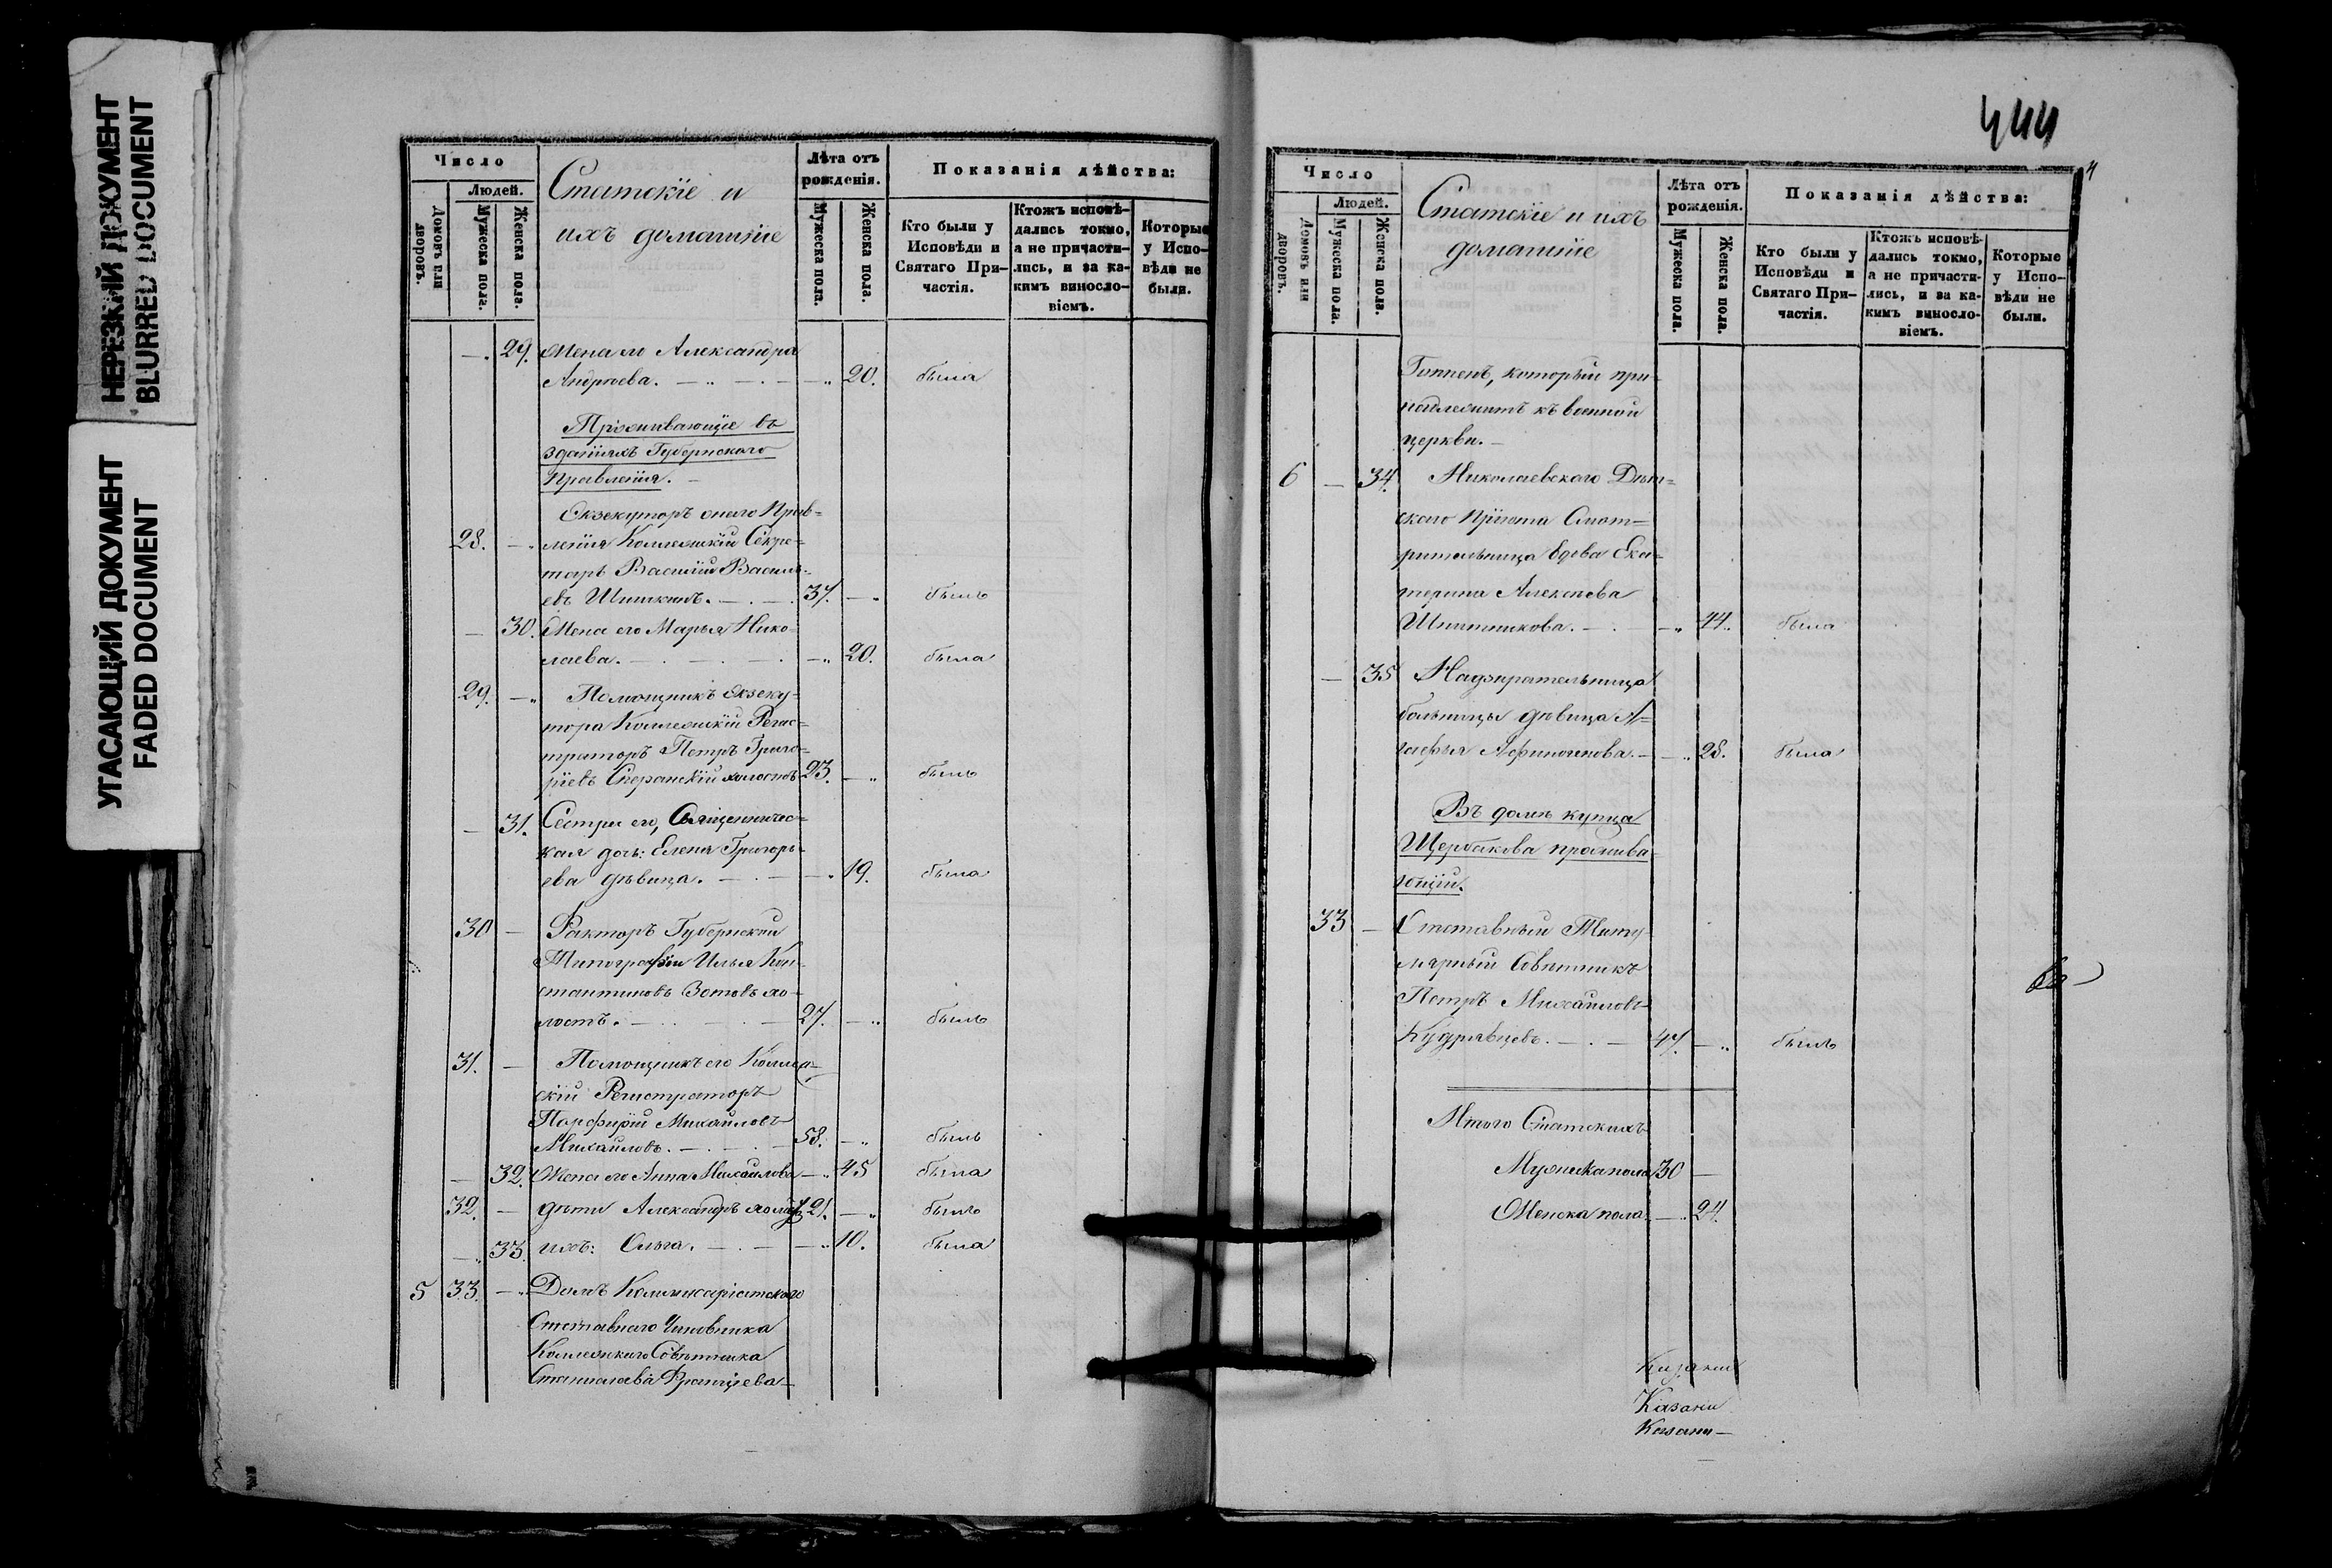 НЕРЕЗКИЙ ДОКУМЕНТ
BLURRED DOCUMENT
УГАСАЮЩИЙ ДОКУМЕНТ
FADED DOCUMENT
Число
Людей.
Домовъ или дворовъ.
Мужеска пола.
Женска пола.
Статскіе и
ихъ домашніе
Лѣта отъ рожденія.
Мужеска пола.
Женска пола.
Показанія дѣйства:
Кто были у Исповѣди и Святаго При-частія.
Ктожъ исповѣ-дались токмо, а не причасти-лись, и за ка-кимъ винosло-віемъ.
Которые у Испо-вѣди не были.
—. 29. Жена его Александра
Андреева. — 20. была
Проживающіе въ
зданіяхъ Губернскаго
Правленія. —
Экзекуторъ онаго Прав=
28. — ленія Коллежскій Секре-
тарь Василій Василь-
евъ Шишкинъ. 37. — былъ
— 30. Жена его Марья Нико-
лаева. — 20. была
29. — Помощникъ Экзеку-
тора Коллежскій Регис-
траторъ Петръ Григо-
ріевъ Сперанскій холостъ 23. — былъ
— 31. Сестра его, Священничес-
кая дочь: Елена Григорь-
ева дѣвица. — 19. была
30 — Факторъ Губернской
Типографіи Илья Кон-
стантиновъ Зотовъ хо-
лостъ. — 27. — былъ
31. — Помощникъ его Коллеж-
скій Регистраторъ
Порфирій Михайловъ
Михайловъ. — 58. — былъ
— 32. Жена его Анна Михайлова — 45 была
32. — дѣти Александръ холостъ 21. — былъ
— 33. ихъ: Ольга. — 10. была
5 33. — Домъ Коммисаріатскаго
Отставнаго Чиновника
Коллежскаго Совѣтника
Станислава Францева—
444
4
Число
Людей.
Домовъ или дворовъ.
Мужеска пола.
Женска пола.
Статскіе и ихъ
домашніе
Лѣта отъ рожденія.
Мужеска пола.
Женска пола.
Показанія дѣйства:
Кто были у Исповѣди и Святаго При-частія.
Ктожъ исповѣ-дались токмо, а не причасти-лись, и за ка-кимъ винocло-віемъ.
Которые у Испо-вѣди не были.
который при-
надлежитъ къ военной
церкви. —
6 — 34. Николаевскаго Дѣт=
скаго Пріюта Смот=
рительница вдова Ека=
терина Алексѣева
— 44. была
— 35 Надзирательница
больницы дѣвица А=
гафья — 28. была
Въ домѣ купца
Щербакова прожива-
ющій.
33 — Отставный Титу-
лярный Совѣтникъ
Петръ Михайловъ
Кудрявцевъ. — 47. — былъ
Итого Статскихъ
Мужеска пола 30 —
Женска пола — 24.
Казани
Казани
Казани —